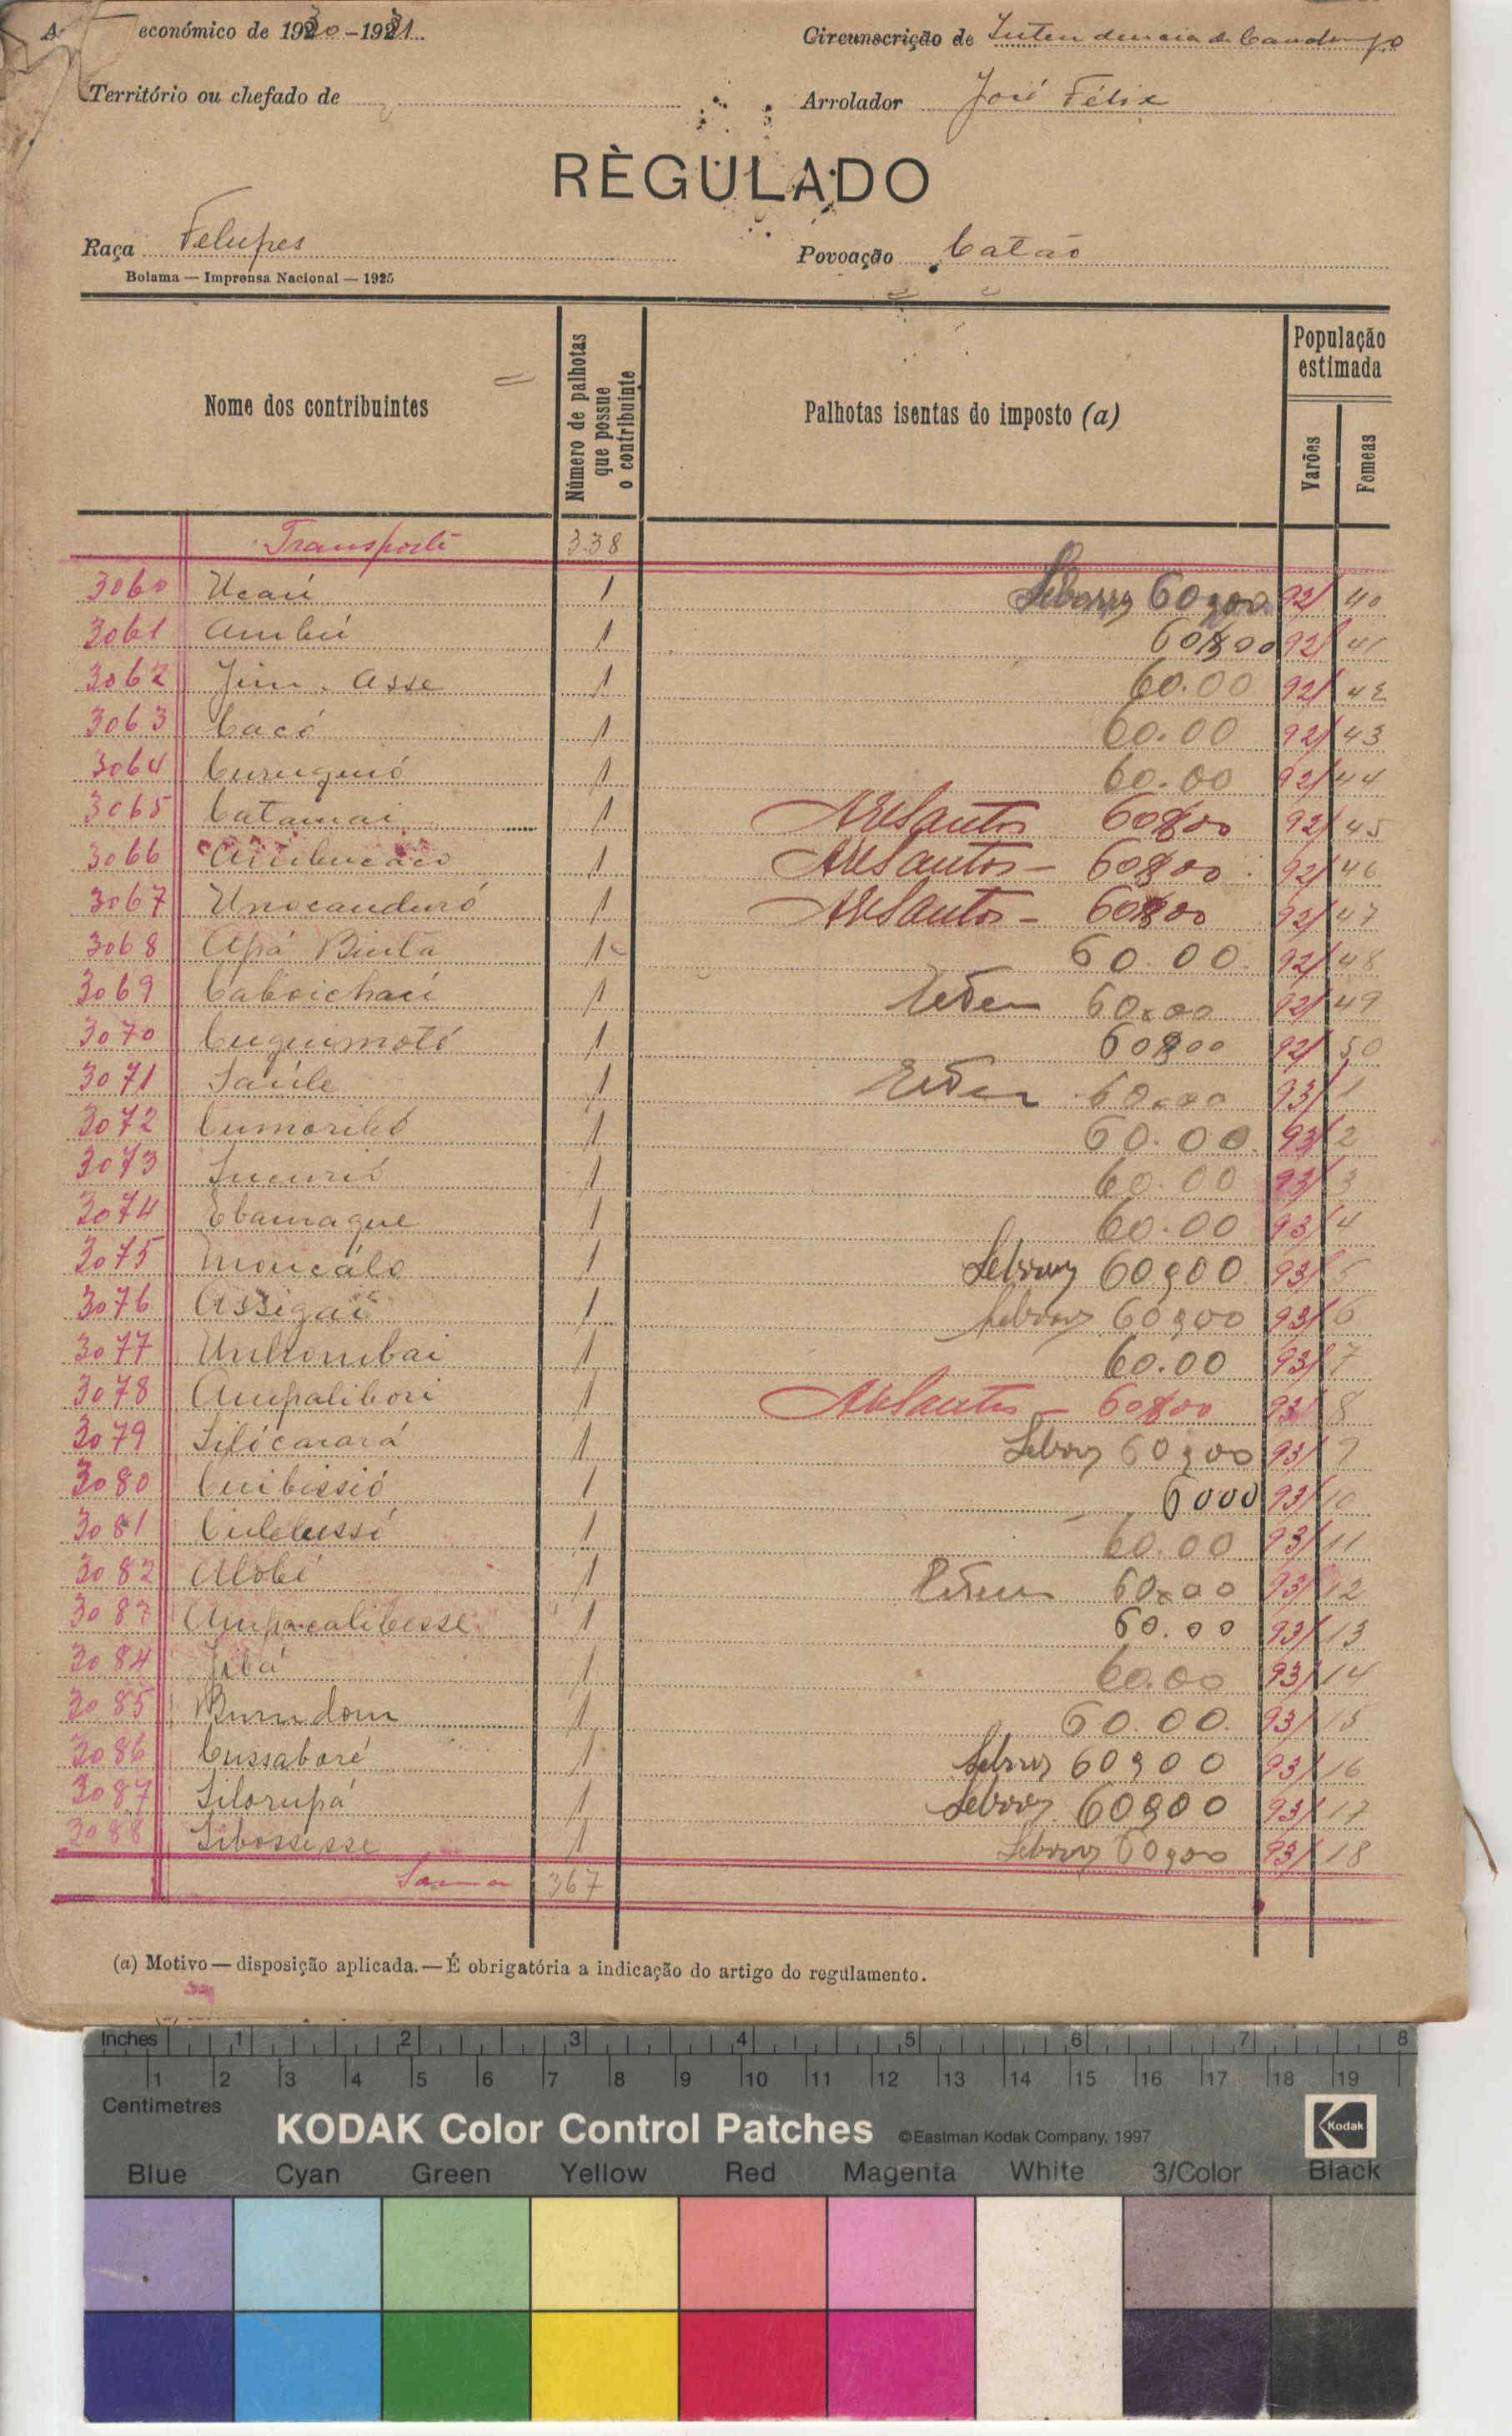 económico de 1930-1931
Circunscrição de Intendencia de Canchungo
Território ou chefado de
Arrolador José Félix
RÈGULADO
Raça Felupes
Povoação Catão
Bolama — Imprensa Nacional — 1925
Nome dos contribuintes
Número de palhotas que possue o contribuinte
Palhotas isentas do imposto (a)
População estimada
Varões
Femeas
Transporte 338
3060 Ucaú 1 60$00 92/ 40
3061 Ambú 1 60$00 92/ 41
3062 Jim. Asse 1 60.00 92/ 42
3063 Cacó 1 60.00 92/ 43
3064 1 60.00 92/ 44
3065 Catamai 1 ARSantos 60$00 92/ 45
3066 1 ARSantos — 60$00 92/ 46
3067 Unocanduró 1 ARSantos — 60$00 92/ 47
3068 Apá Binta 1 60.00. 92/ 48
3069 Caboichaú 1 60x00 92/ 49
3070 Cuguimoté 1 60$00 92/ 50
3071 Saúle 1 60x00 93/ 1
3072 Cumoribó 1 60.00. 93/ 2
3073 1 60.00 93/ 3
3074 Ebamaque 1 60.00 93/ 4
3075 Moncálo 1 60$00 93/ 5
3076 Assigaú 1 60$00 93/ 6
3077 1 60.00 93/ 7
3078 Ampalibori 1 ARSantos — 60$00 93/ 8
3079 1 60$00 93/ 9
3080 Cuibissió 1 6000 93/ 10
3081 1 60.00 93/ 11
3082 Alobé 1 60x00 93/ 12
3083 Ampacalibesse 1 60.00 93/ 13
3084 Jibá 1 60.00 93/ 14
3085 1 60.00. 93/ 15
3086 Cussaboré 1 60$00 93/ 16
3087 Silorupá 1 60$00 93/ 17
3088 Sibossesse 1 60$00 93/ 18
Soma 367
(a) Motivo — disposição aplicada. — É obrigatória a indicação do artigo do regulamento.
Inches 1 2 3 4 5 6 7 8
1 2 3 4 5 6 7 8 9 10 11 12 13 14 15 16 17 18 19
Centimetres
KODAK Color Control Patches ©Eastman Kodak Company, 1997 Kodak
Blue Cyan Green Yellow Red Magenta White 3/Color Black